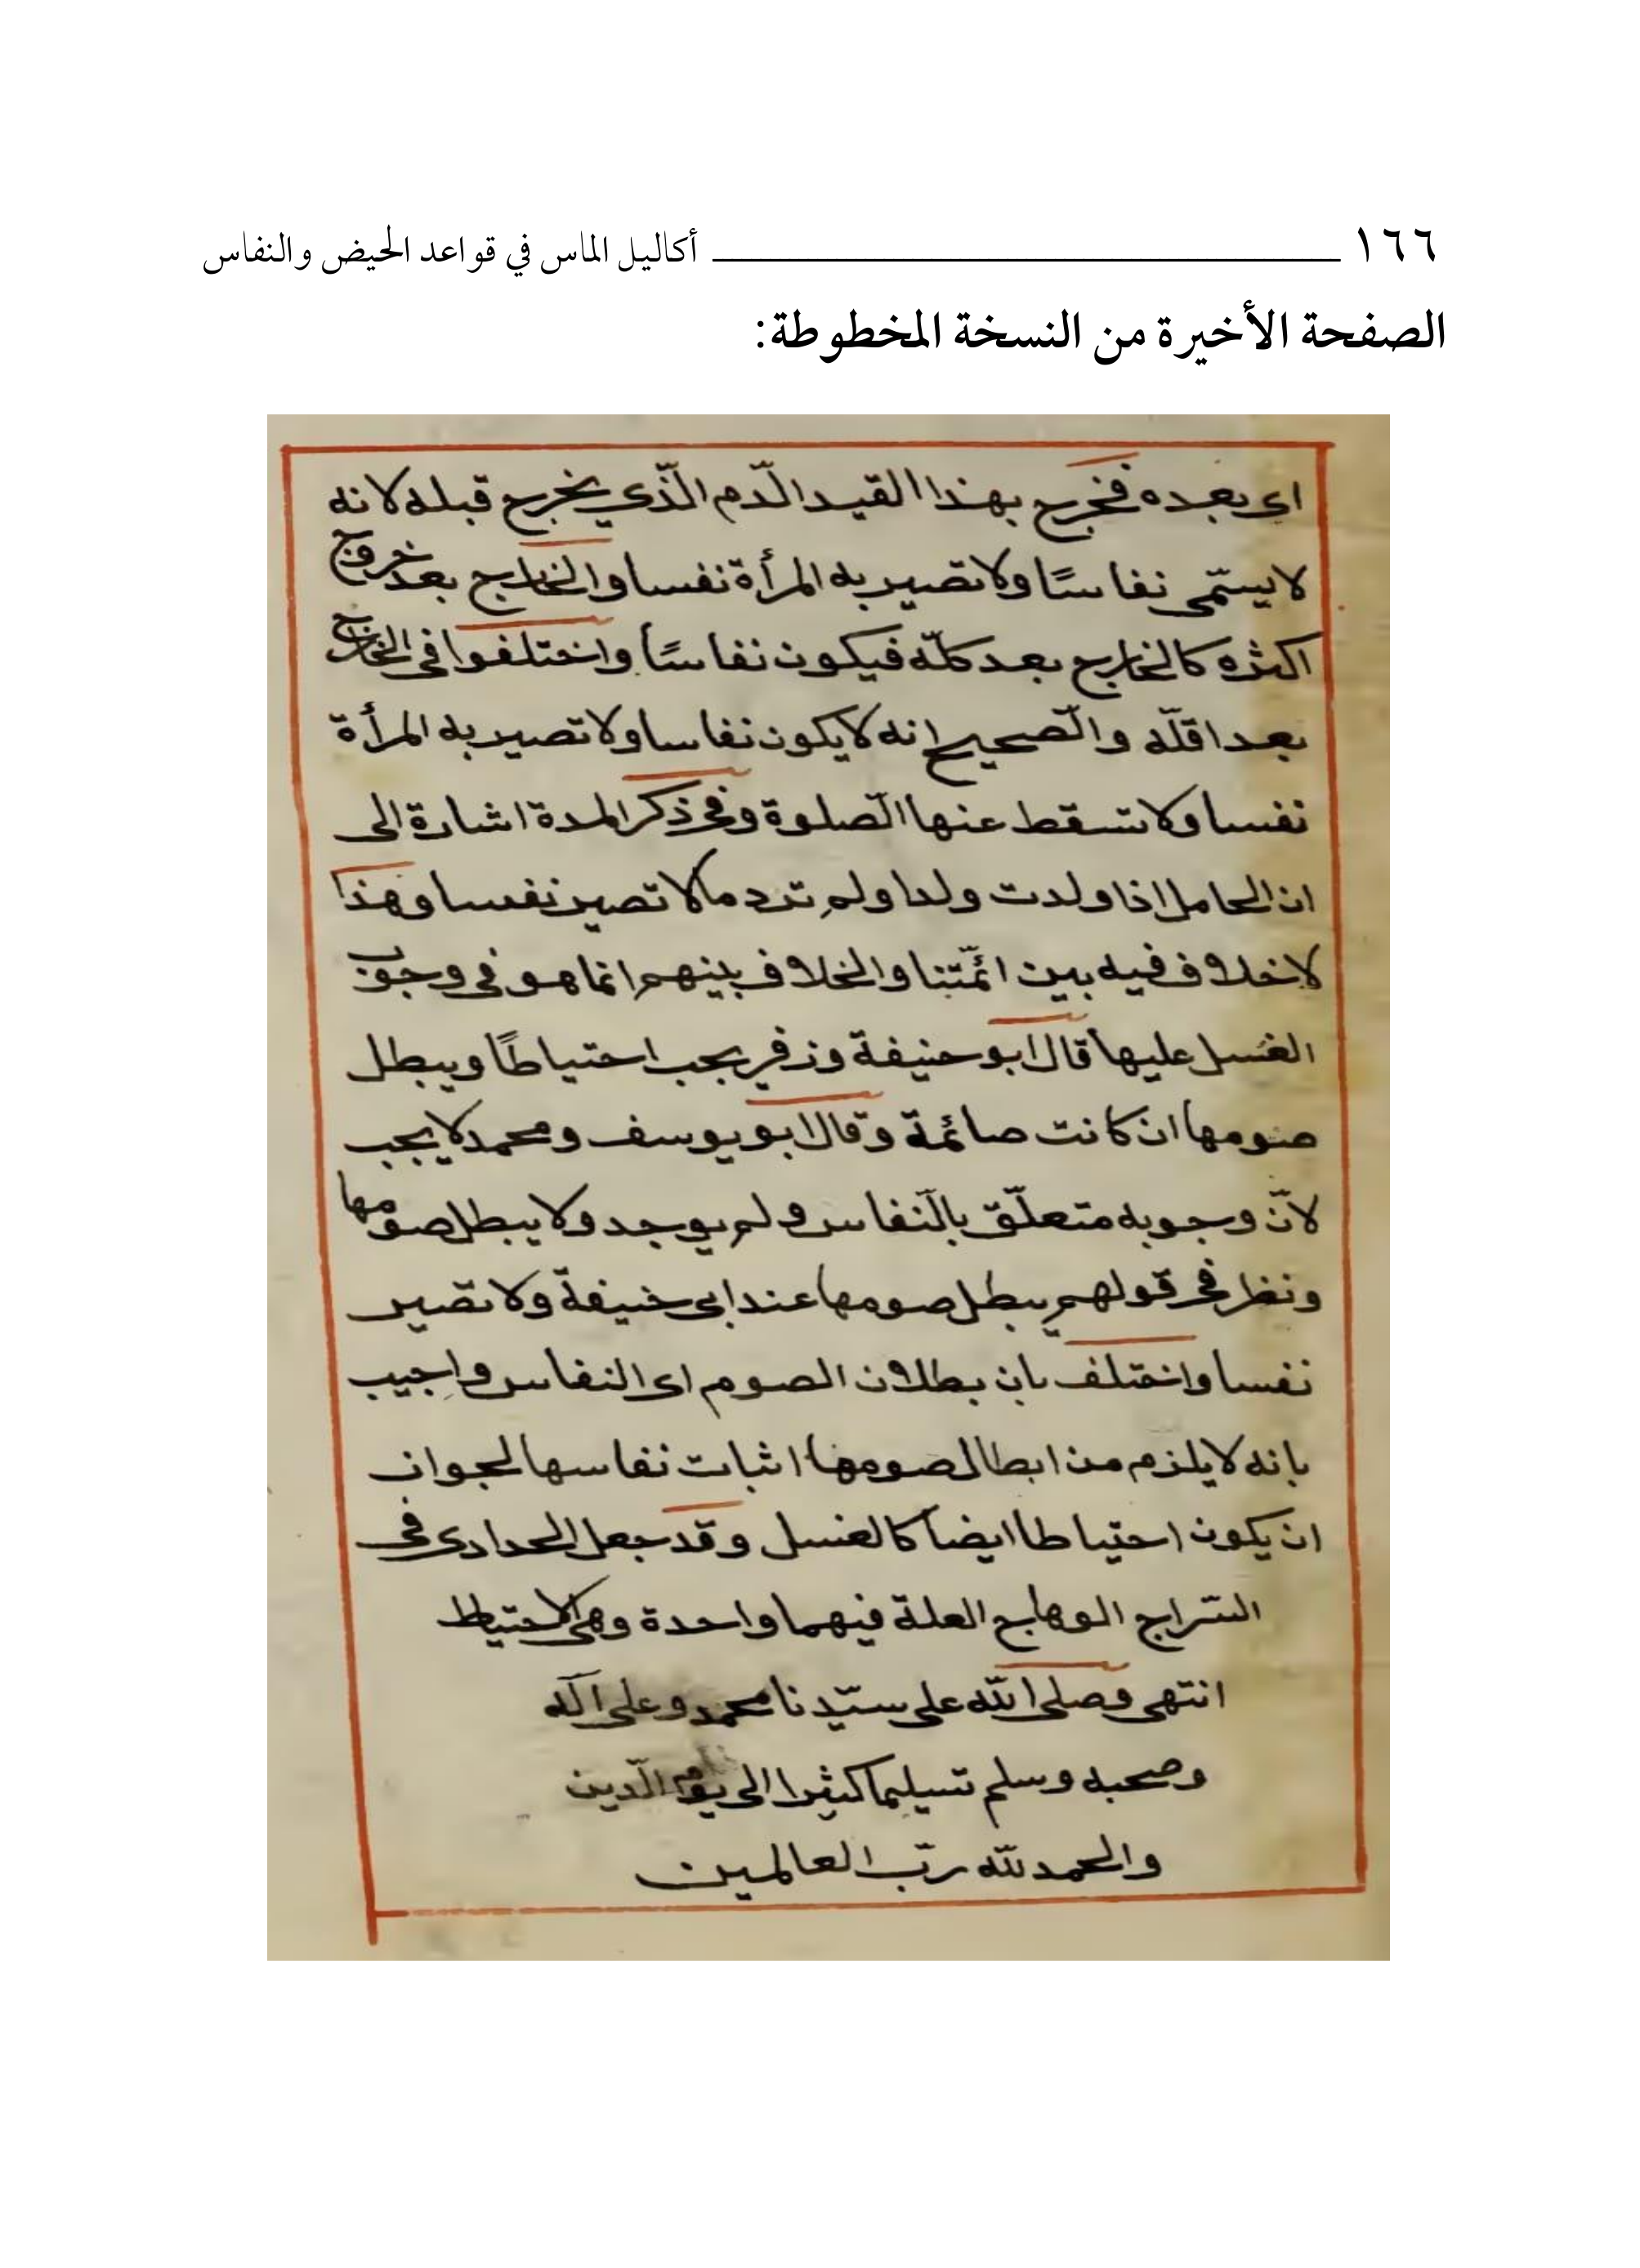 ١٦٦ أكاليل الماس في قواعد الحيض والنفاس
الصفحة الأخيرة من النسخة المخطوطة:
اى بعده فخرج بهذا القيد الدّم الّذي يخرج قبله لانه
لا يسمّى نفاسًا ولا تصير به المرأة نفسا والخارج بعد خروج
اكثره كالخارج بعد كلّه فيكون نفاسًا واختلفوا في الخارج
بعد اقلّه والصّحيح انه لا يكون نفاسا ولا تصير به المرأة
نفسا ولا تسقط عنها الصّلوة وفى ذكر المدة اشارة الى
ان الحامل اذا ولدت ولدا ولم تر دما لا تصير نفسا وهذا
لا خلاف فيه بين ائمّتنا والخلاف بينهم انما هو فى وجوب
الغسل عليها قال ابو حنيفة وزفر يجب احتياطًا ويبطل
صومها ان كانت صائمة وقال ابو يوسف ومحمد لا يجب
لانّ وجوبه متعلّق بالنّفاس ولم يوجد ولا يبطل صومها
ونظر فى قولهم يبطل صومها عند ابى حنيفة ولا تصير
نفسا واختلف بان بطلان الصوم اى النفاس واجيب
بانه لا يلزم من ابطال صومها اثبات نفاسها لجواز
ان يكون احتياطا ايضا كالغسل وقد جعل الحدادى فى
السّراج الوهاج العلة فيهما واحدة وهى الاحتياط
انتهى وصلى الله على سيّدنا محمد وعلى آله
وصحبه وسلم تسليما كثيرا الى يوم الدّين
والحمد لله ربّ العالمين